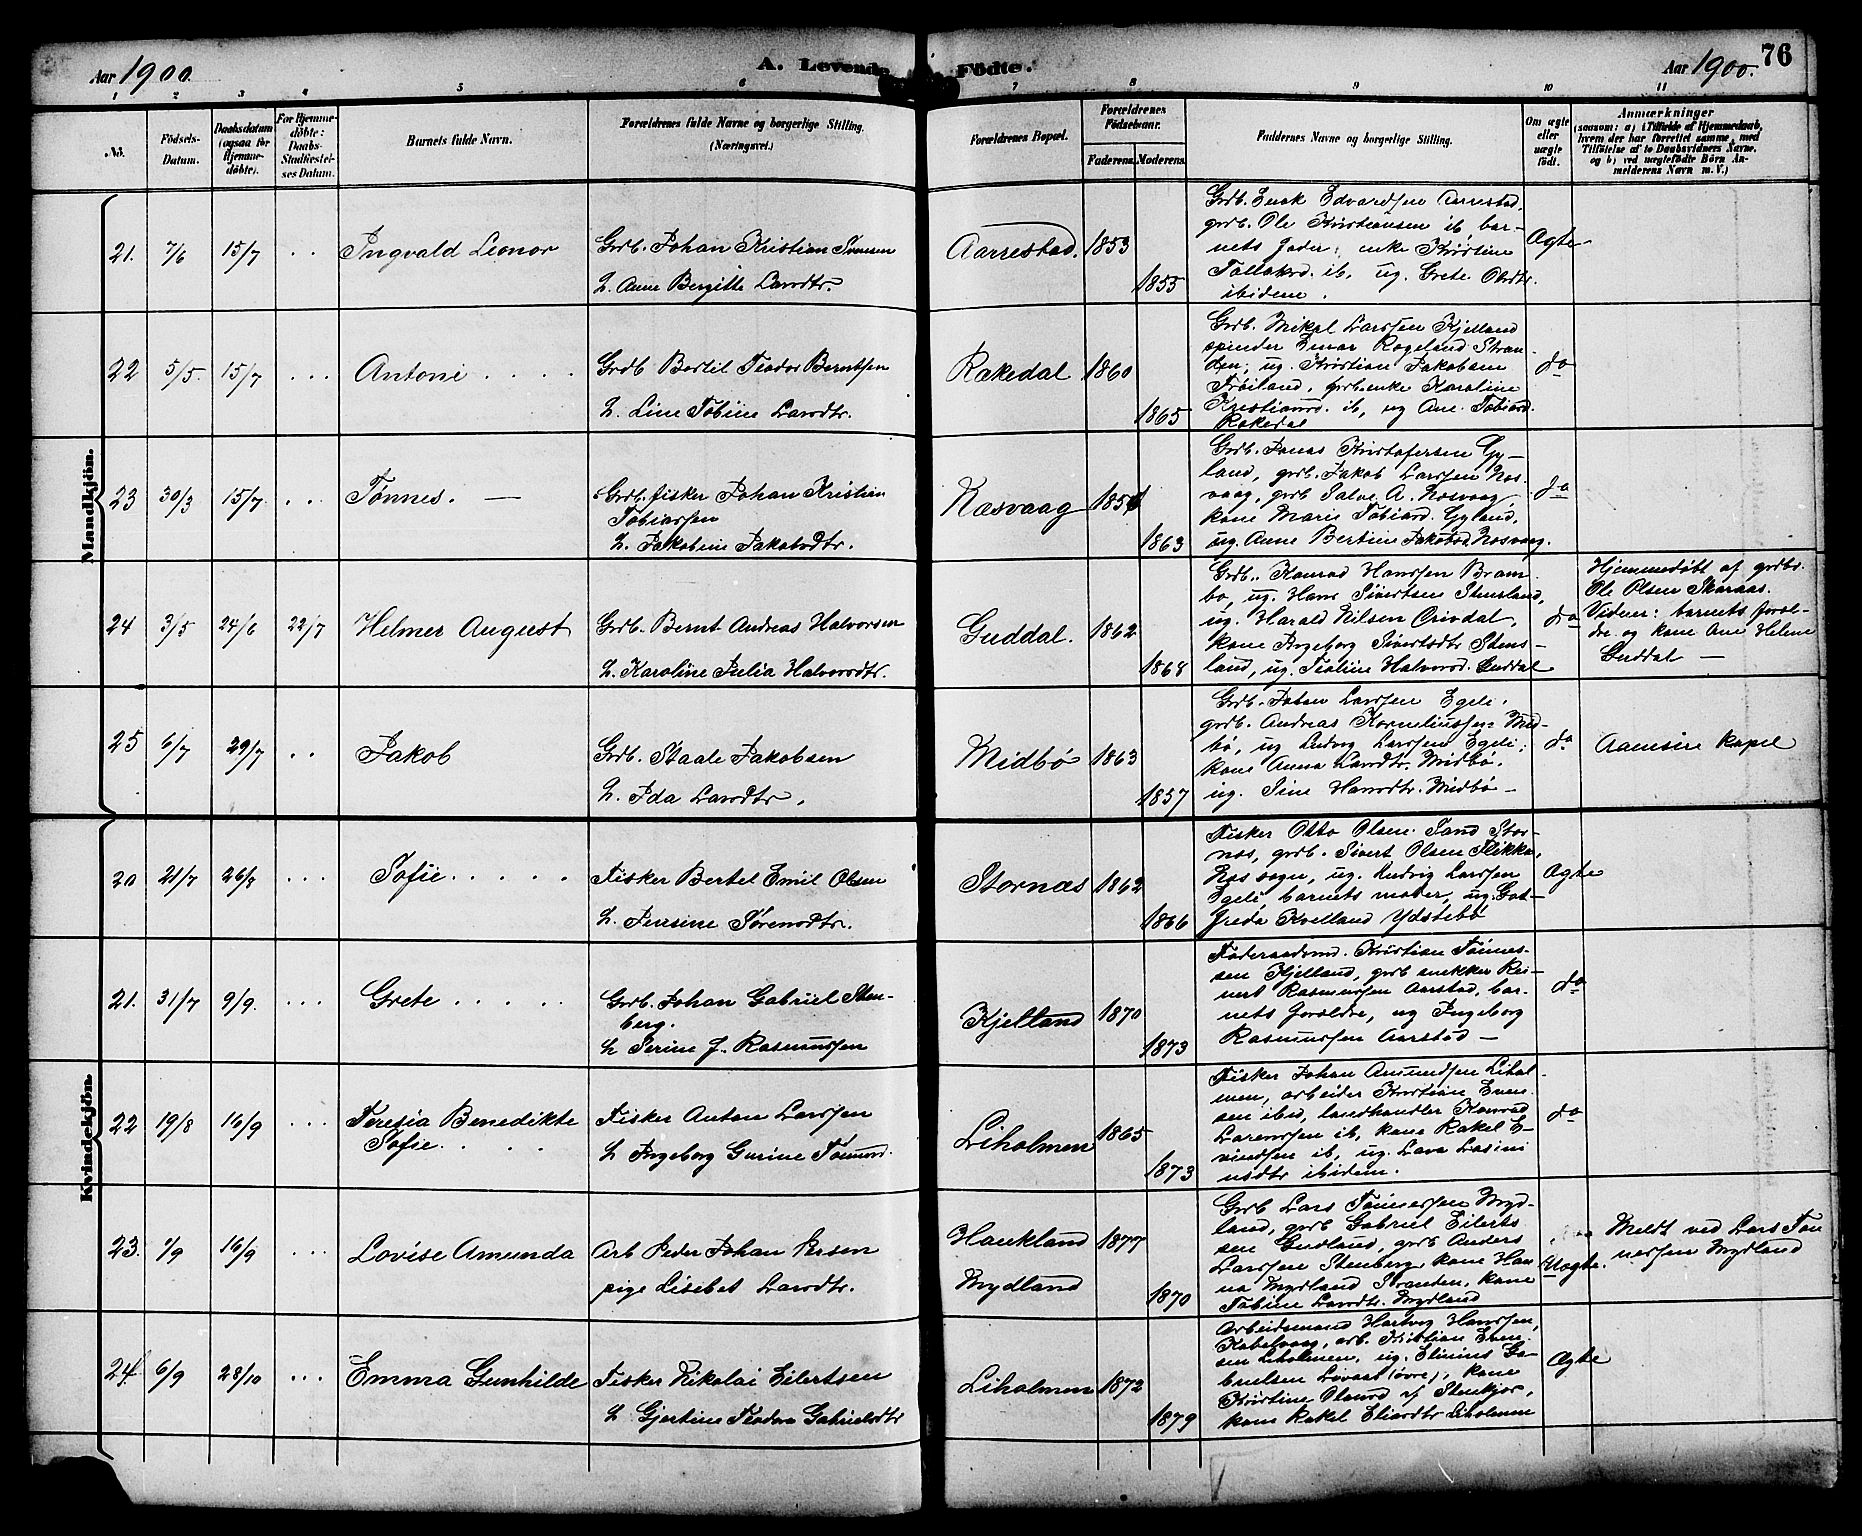 Aar 1900.
A. Levende Födte.
Aar 1900.
76
1 2 3 4 5 6 7 8 9 10 11
No.
Födsels-
Datum.
Daabsdatum
(ogsaa for
Hjemme-
döbte).
For Hjemme-
döbte:
Daabs-
Stadfæstel-
ses Datum.
Barnets fulde Navn.
Forældrenes fulde Navne og borgerlige Stilling.
(Næringsvei.)
Forældrenes Bopæl.
Forældrenes
Födselsaar.
Faderens. Moderens.
Faddernes Navne og borgerlige Stilling.
Om ægte
eller
uægte
født.
Anmærkninger
(saasom: a) i Tilfælde af Hjemmedaab,
hvem der har forrettet samme, med
Tilföielse af to Daabsvidners Navne,
og b) ved uægtefödte Börn An-
melderens Navn m. V.)
Mandkjön.
21. 7/6 15/7 . . Ingvald Leonor
Grdb. Johan Kristian
H. Anne Bergitte Larsdtr.
Aarrestad. 1853
1855
Grdb. Enok Edvardsen Aarrestad,
grdb. Ole Kristiansen ib, bar-
nets fader, enke Kristine
Tollaksd. ib, ug. Grete Olsdtr.
ibidem.
Ægte
22 5/5. 15/7 . . . Antoni . . . .
Grdb Bertil Teodor Berntsen
H. Line Tobine Larsdtr.
Rakedal 1860
1865
Grdb. Mikal Larssen Kjelland
spinder Enar Rogeland Stran-
den, ug. Kristian Jakobsen
Trøiland, grdb.enke Karoline
Kristiansd. ib, ug Ane Tobiasd.
Rakedal
do
23 30/3 15/7. . . Tønnes. —
Grdb. fisker Johan Kristian
Tobiassen
H. Jakobine Jakobsdtr.
Næsvaag
1863
Grdb. Jonas Kristofersen Gy-
land, grdb. Jakob Larssen Næs-
vaag, grdb Salve A. Næsvaag
kone Marie Tobiasd. Gyland,
ug. Anne Bertine Jakobsd Næsvaag.
do
24 3/5 24/6 22/7 Helmer August
Grdb. Bernt Andreas Halvorsen
H. Karoline Julia Halvorsdtr.
Guddal. 1862
1868
Grdb. Konrad Hanssen Bram-
bo, ug. Hans Sivertsen Stensland,
ug. Harald Nilsen
kone Ingeborg Sivertsdtr Stens-
land, ug. Teoline Halvorsd. Guddal
do
Hjemmedøbt af grdbr.
Ole Olsen Skaraas.
Vidner: barnets foræl-
dre og kone Ane Helene
Guddal —
25 6/7 29/7 . . Jakob
Grdb. Staale Jakobsen
H. Ida Larsdtr.
Midbø 1863
1857
Grdb. Johan Larssen Egeli,
grdb. Andreas Korneliussen Mid-
bø, ug Ludvig Larssen Egeli,
kone Anna Larsdtr. Midbø.
ug. Sine Hansdtr. Midbø —
do
Aamsire kapel
Kvindekjön.
20 21/7 . . . Sofie . . . . .
Fisker Bertel Emil Olsen
H. Jensine Sørensdtr.
Stornæs 1862
1866
Fisker Otto Olsen Sand Stor-
næs, grdb. Sivert Olsen Flikke,
ug. Ludvig Larssen
Egeli, barnets moder, ug. Got-
freda Kvelland Ydstebø
Ægte
21. 31/7 9/9. . . . Grete . . . . .
Grdb. Johan Gabriel Sten-
berg.
H Serine J. Rasmussen
Kjelland 1870
1873
Føderaadsmd. Kristian Tønnes-
sen Kjelland, grdb snekker Rei-
nert Rasmussen Aarstad, bar-
nets forældre, ug Ingeborg
Rasmussen Aarstad —
do
22 19/8 16/9 . . . Teresia Benedikte
Sofie. . . .
Fisker Anton Larssen
H Ingeborg Gurine
Liholmen 1865
1873
Fisker Johan Amundsen Lihol-
men, arbeider Kristian Even-
sen ibid, landhandler Konrad
Larenssen ib, kone Rakel E-
vindsen ib, ug. Lava
ibidem.
do
23. 1/9 16/9 . . . Lovise Amunda
Arb Peder Johan
pige Lisebet Larsdtr.
Haukland
Mydland
1877
1870
Grdb Lars Tønnessen Myd-
land, grdb Gabriel Eilerts-
sen Gudland, grdb Anders
Larssen Stenberg, kone Han-
na Mydland Stranden, kone
Tobine Larsdtr. Mydland
Uægte.
Meldt ved Lars Tøn-
nessen Mydland
24. 6/9 28/10 . . . Emma Gunhilde
Fisker Nikolai Eilertsen
H Gjertine Teodora Gabrielsdtr
Liholmen 1872
1879
Arbeidsmand Hartvig Hanssen,
Kabelvaag, arb. Kristian Even-
sen Liholmen, ug. Elinius Ga-
brielsen Løvaas (øvre), kone
Kristine Olausd
kone Rakel Eliasdtr Liholmen
Ægte